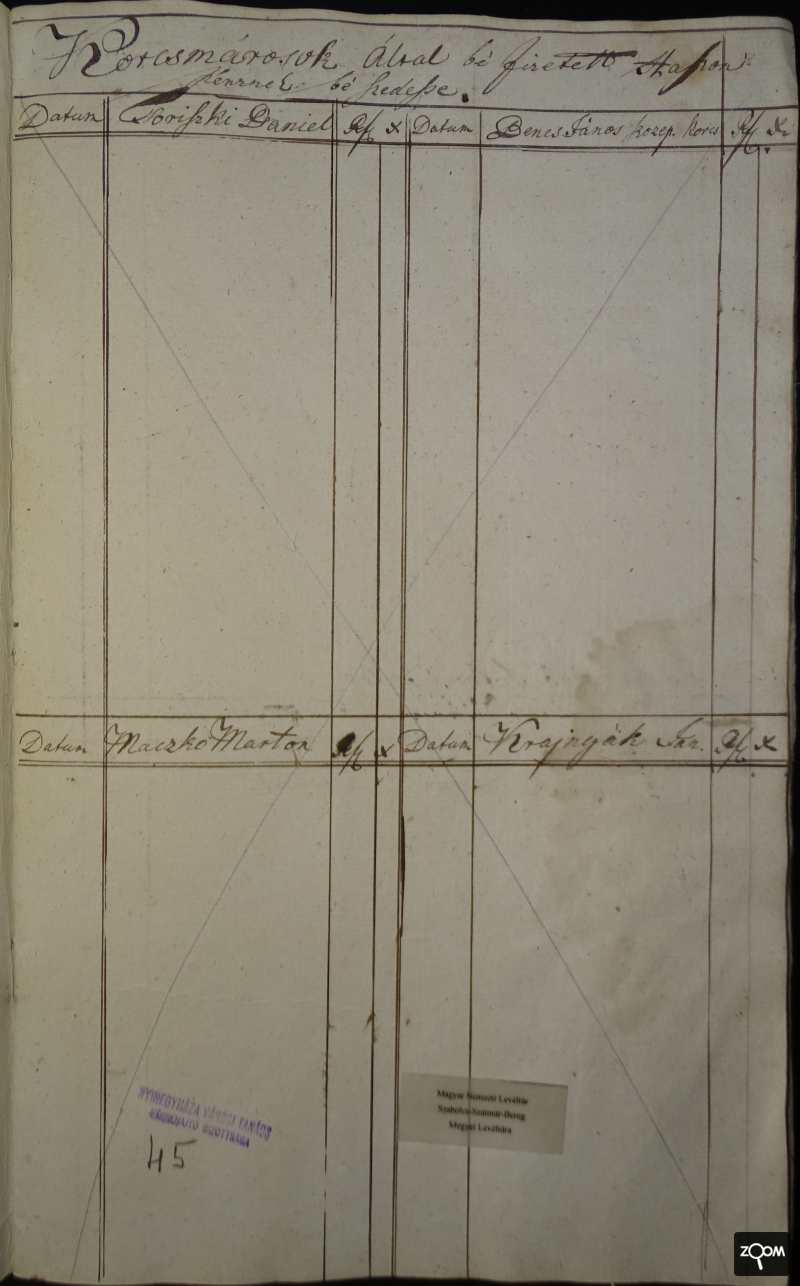 Korcsmárosok Által bé fizetett Haszon
Pénznek bé szedésse.
Datum Soriszki Daniel Rf x Datum Bencs János közép. Korcs Rf xr
Datum Maczkó Marton Rf x Datum Krajnyák Rf x
NYIREGYHÁZA VÁROSI TANÁCS
VÉGREHAJTÓ BIZOTTSÁGA
45
Magyar Nemzeti Levéltár
Szabolcs-Szatmár-Bereg
Megyei Levéltára
ZOOM